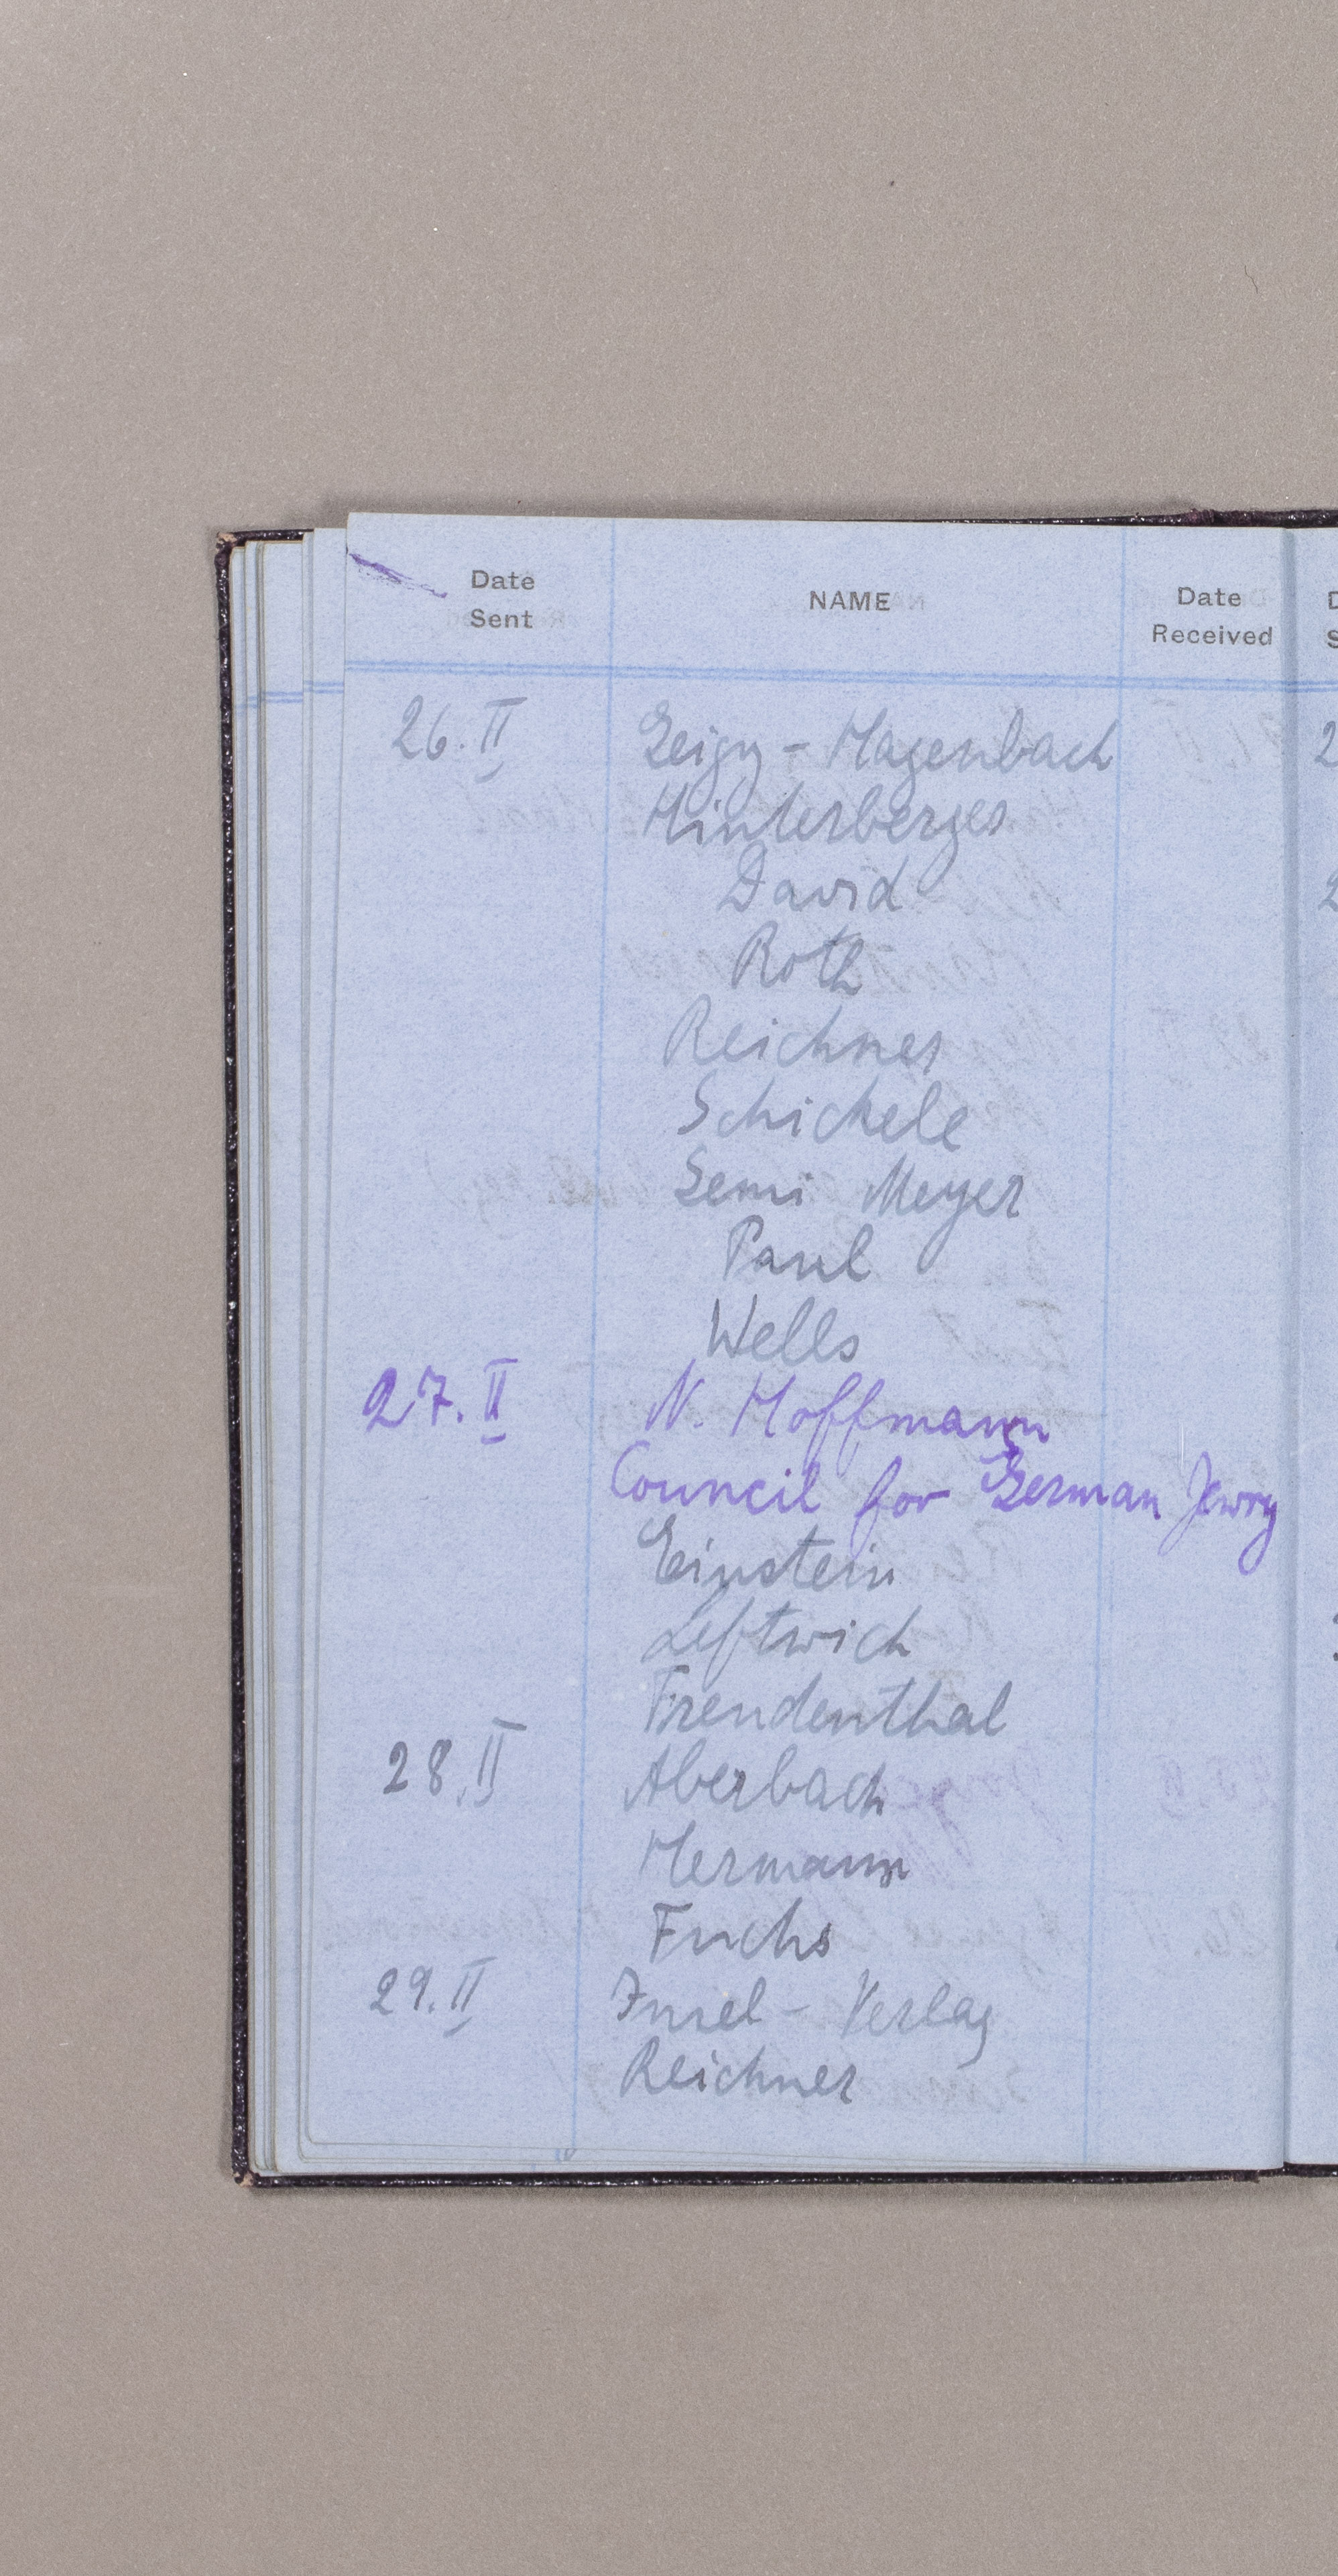 Date Sent NAME Date Received
26. II Geigy - Hagenbach
Hinterberger
David
Roth
Reichner
Schickele
Semi Meyer
Paul
Wells
27. II N. Hoffmann
Council for German Jewry
Einstein
Leftwich
Freudenthal
28. II Aberbach
Hermann
Fuchs
29. II Insel - Verlag
Reichner